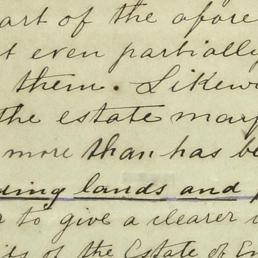 art of the afore
t even partially
them. Likew
the estate may
more than has be
ding lands and
to give a clearer
its of the Estate of En